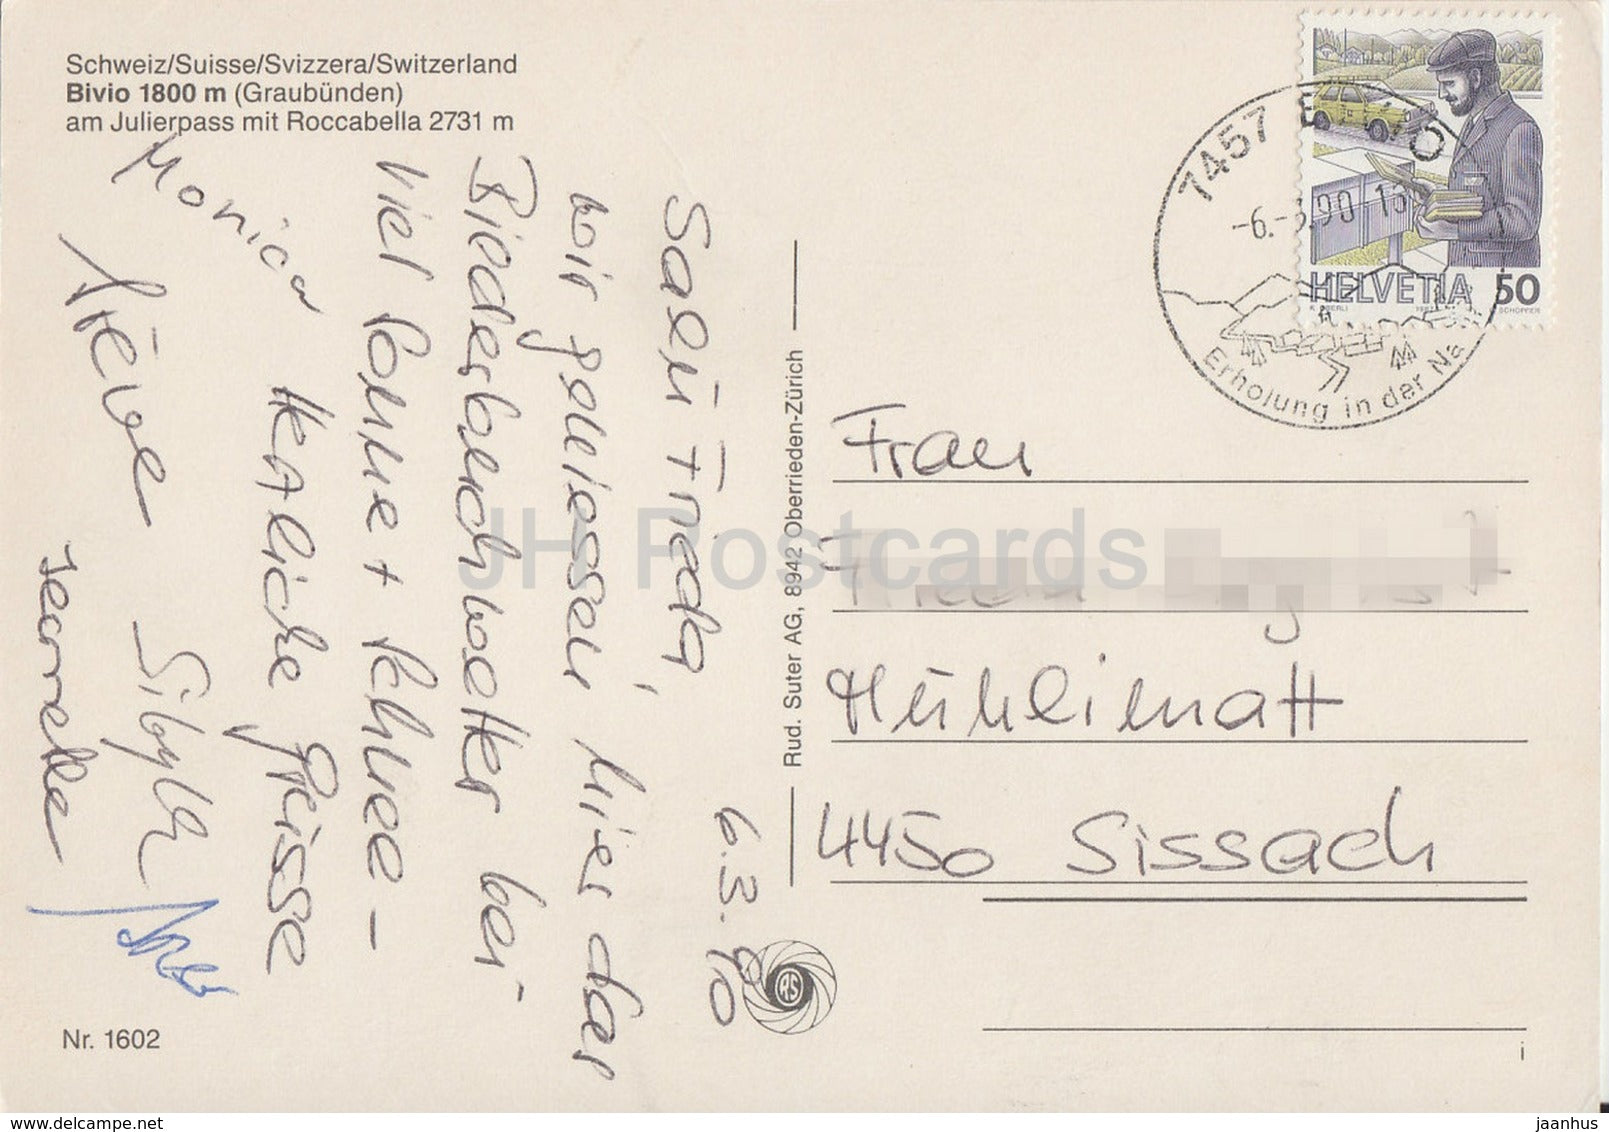 Schweiz/Suisse/Svizzera/Switzerland
Bivio 1800 m (Graubünden)
am Julierpass mit Roccabella 2731 m
6.3.90
Salü Frieda,
wir geniessen hier das
Bilderbuchwetter bei
viel Sonne + Schnee –
Herzliche Grüsse
Monica
Sibylle
Jeannette
Rud. Suter AG, 8942 Oberrieden-Zürich
RS
7457
-6.-3.90 15
Erholung in der Na
HELVETIA 50
Frau
Mühlimatt
4450 Sissach
Nr. 1602
i
JH Postcards
www.delcampe.net
jaanhus